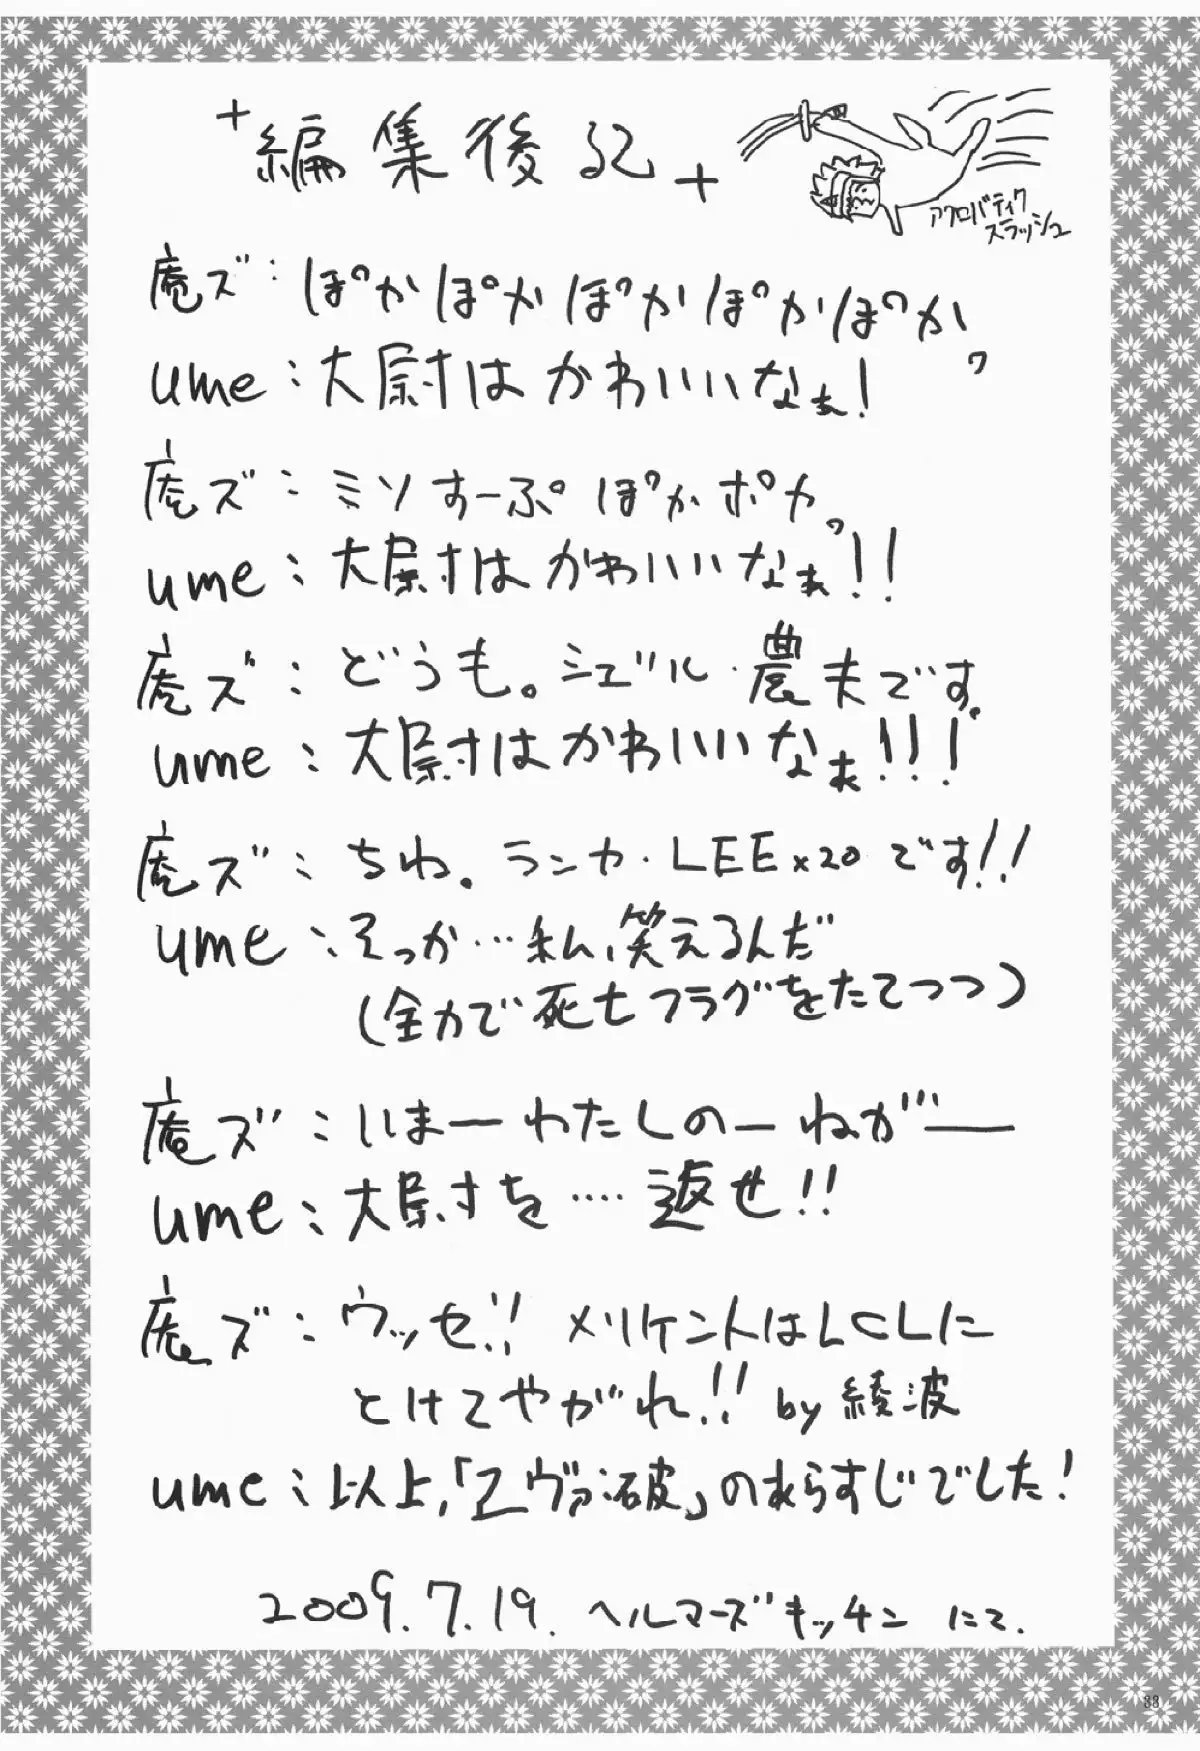 +編集後記+
アクロバティク
スラッシュ
庵ズ:ぽかぽかぽかぽかぽか。
ume:大尉はかわいいなぁ!
庵ズ:ミソすーぷぽかポカ。
ume:大尉はかわいいなぁ!!
庵ズ:どうも。シェゾル・農夫です。
ume:大尉はかわいいなぁ!!!
庵ズ:ちわ。ランカ・LEE×20です!!
ume:そっか…私、笑えるんだ
(全力で死亡フラグをたてつつ)
庵ズ:いまーわたしのーねがーー
ume:大尉を‥‥返せ!!
庵ズ:ウッセ!! メリケントはLCLに
とけてやがれ!! by 綾波
ume:以上、「ヱヴァ:破」のあらすじでした!
2009.7.19. ヘルマーズキッチン にて.
33